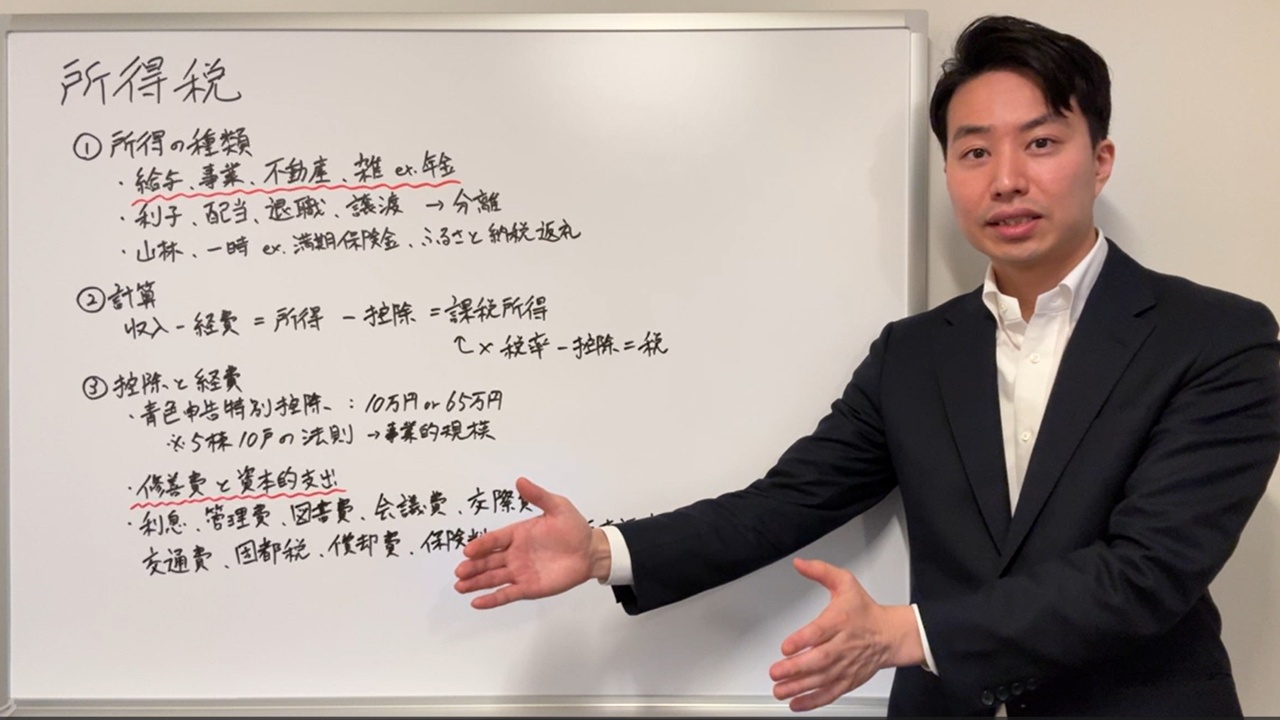 所得税
① 所得の種類
・給与、事業、不動産、雑 ex.年金
・利子、配当、退職、譲渡 → 分離
・山林、一時 ex.満期保険金、ふるさと納税返礼
② 計算
収入-経費 = 所得 -控除 =課税所得
↑× 税率-控除=税
③ 控除と経費
・青色申告特別控除 : 10万円 or 65万円
※5棟10戸の法則 →事業的規模
・修善費と資本的支出
・利息、管理費、図書費、会議費、交際費
交通費、固都税、償却費、保険料